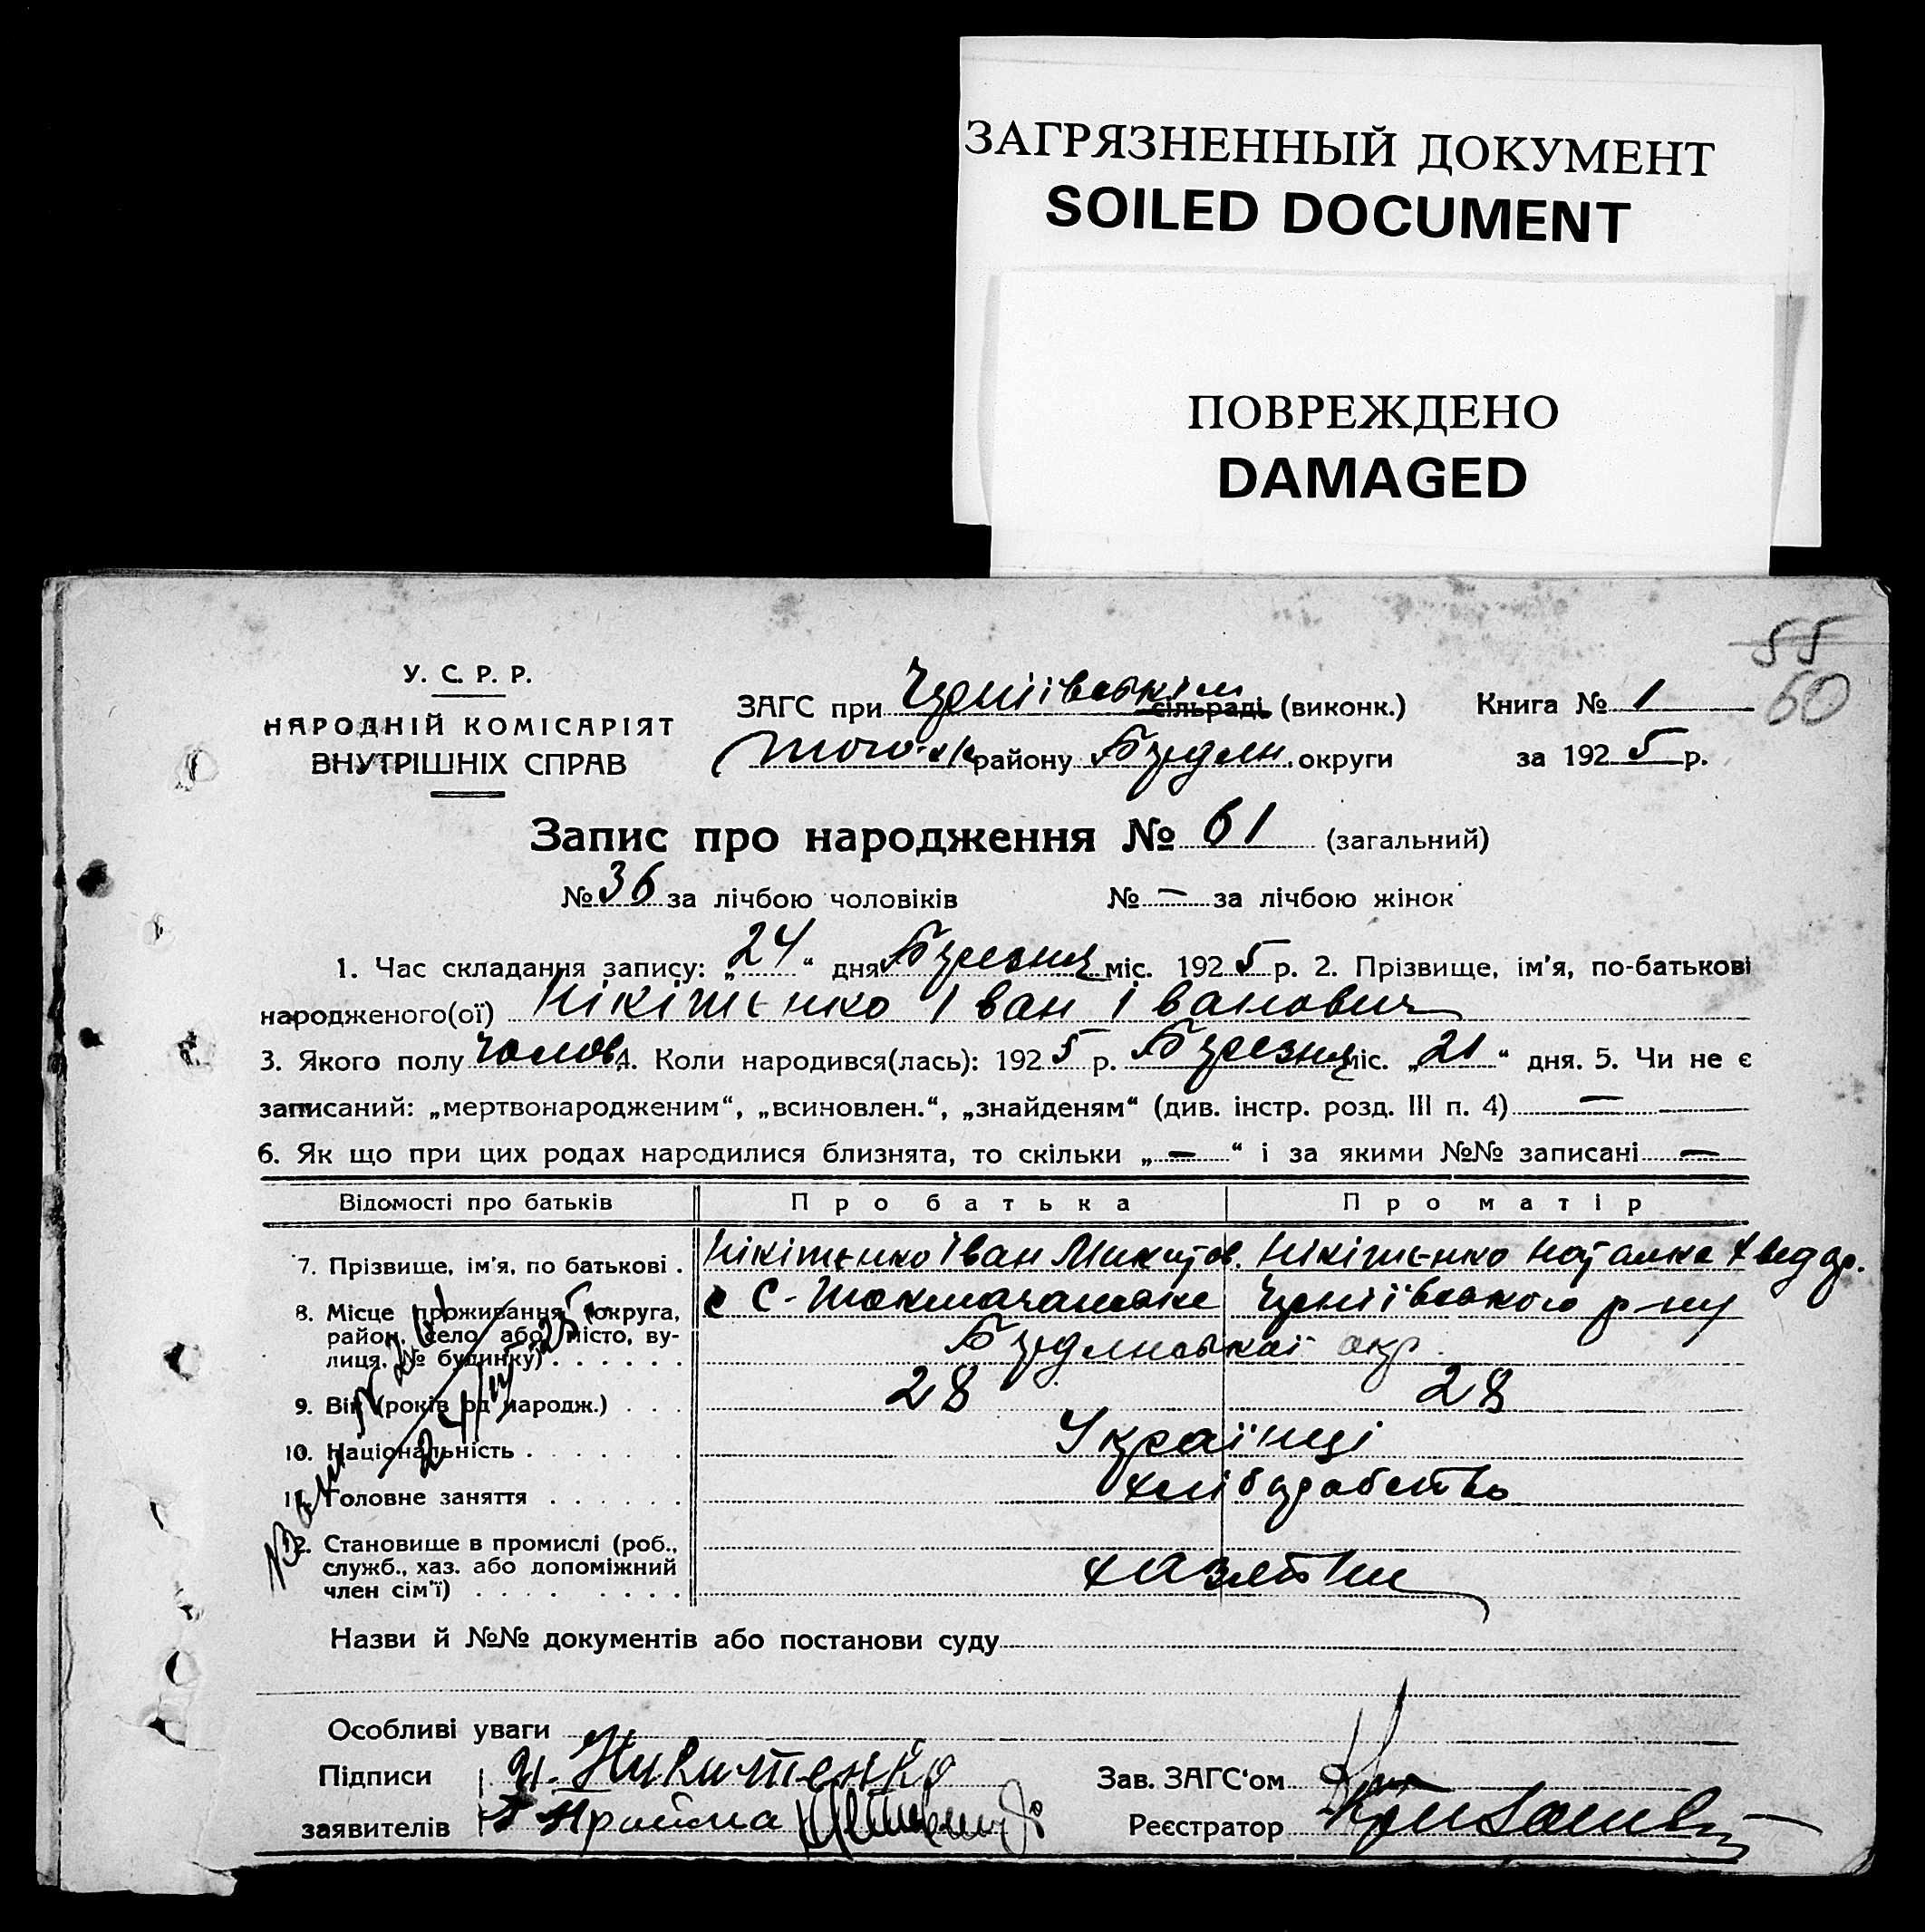 ЗАГРЯЗНЕННЫЙ ДОКУМЕНТ
SOILED DOCUMENT
ПОВРЕЖДЕНО
DAMAGED
55
60
У. С. Р. Р.
НАРОДНІЙ КОМІСАРІЯТ
ВНУТРІШНІХ СПРАВ
ЗАГС при Чернігівськім сільраді (виконк.)
того-ж району Бердян. округи
Книга № 1
за 1925 р.
Запис про народження № 61 (загальний)
№ 36 за лічбою чоловіків № — за лічбою жінок
1. Час складання запису: „24“ дня Березня міс. 1925 р. 2. Прізвище, ім'я, по-батькові
народженого(ої) Нікітенко Іван Іванович
3. Якого полу чолов. 4. Коли народився(лась): 1925 р. Березня міс. „21“ дня. 5. Чи не є
записаний: „мертвонародженим“, „всиновлен.“, „знайденям“ (див. інстр. розд. III п. 4) —
6. Як що при цих родах народилися близнята, то скільки „—“ і за якими №№ записані —
Відомості про батьків Про батька Про матір
7. Прізвище, ім'я, по батькові . Нікітенко Іван Микитов. Нікітенко Наталка Хведор.
8. Місце проживання (округа, район, село або місто, вулиця, № будинку) . . . . . .
с С-Токмачанське Чернігівського р-ну
Бердянської окр.
9. Вік (років од народж.) . . . 28 28
10. Національність . . . . . Українці
11. Головне заняття . . . . . хліборобство
12. Становище в промислі (роб.,
служб., хаз. або допоміжний
член сім'ї) . . . . . . . . хазяїни
Назви й №№ документів або постанови суду
Особливі уваги
Підписи И. Никитенко
заявителів
Зав. ЗАГС'ом
Реєстратор